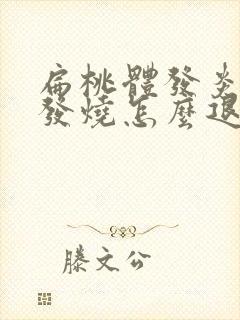 扁桃體發炎
發燒怎麼退
滕文公